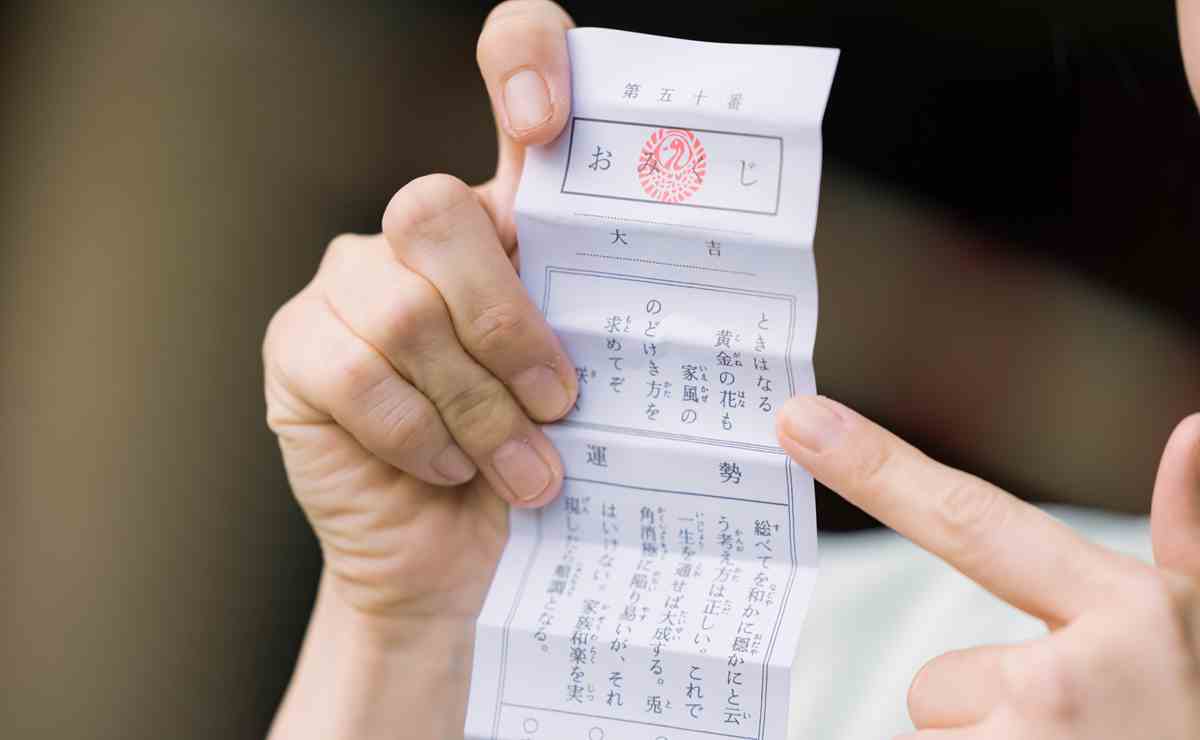 第五十番
おみくじ
大吉
ときはなる
黄金の花も
家風の
のどけき方を
求めてぞ
咲
運勢
総べてを和かに穏かにと云
う考え方は正しい。これで
一生を通せば大成する。兎
角消極に陥り易いが、それ
はいけない。家族和楽を実
現したら順調となる。